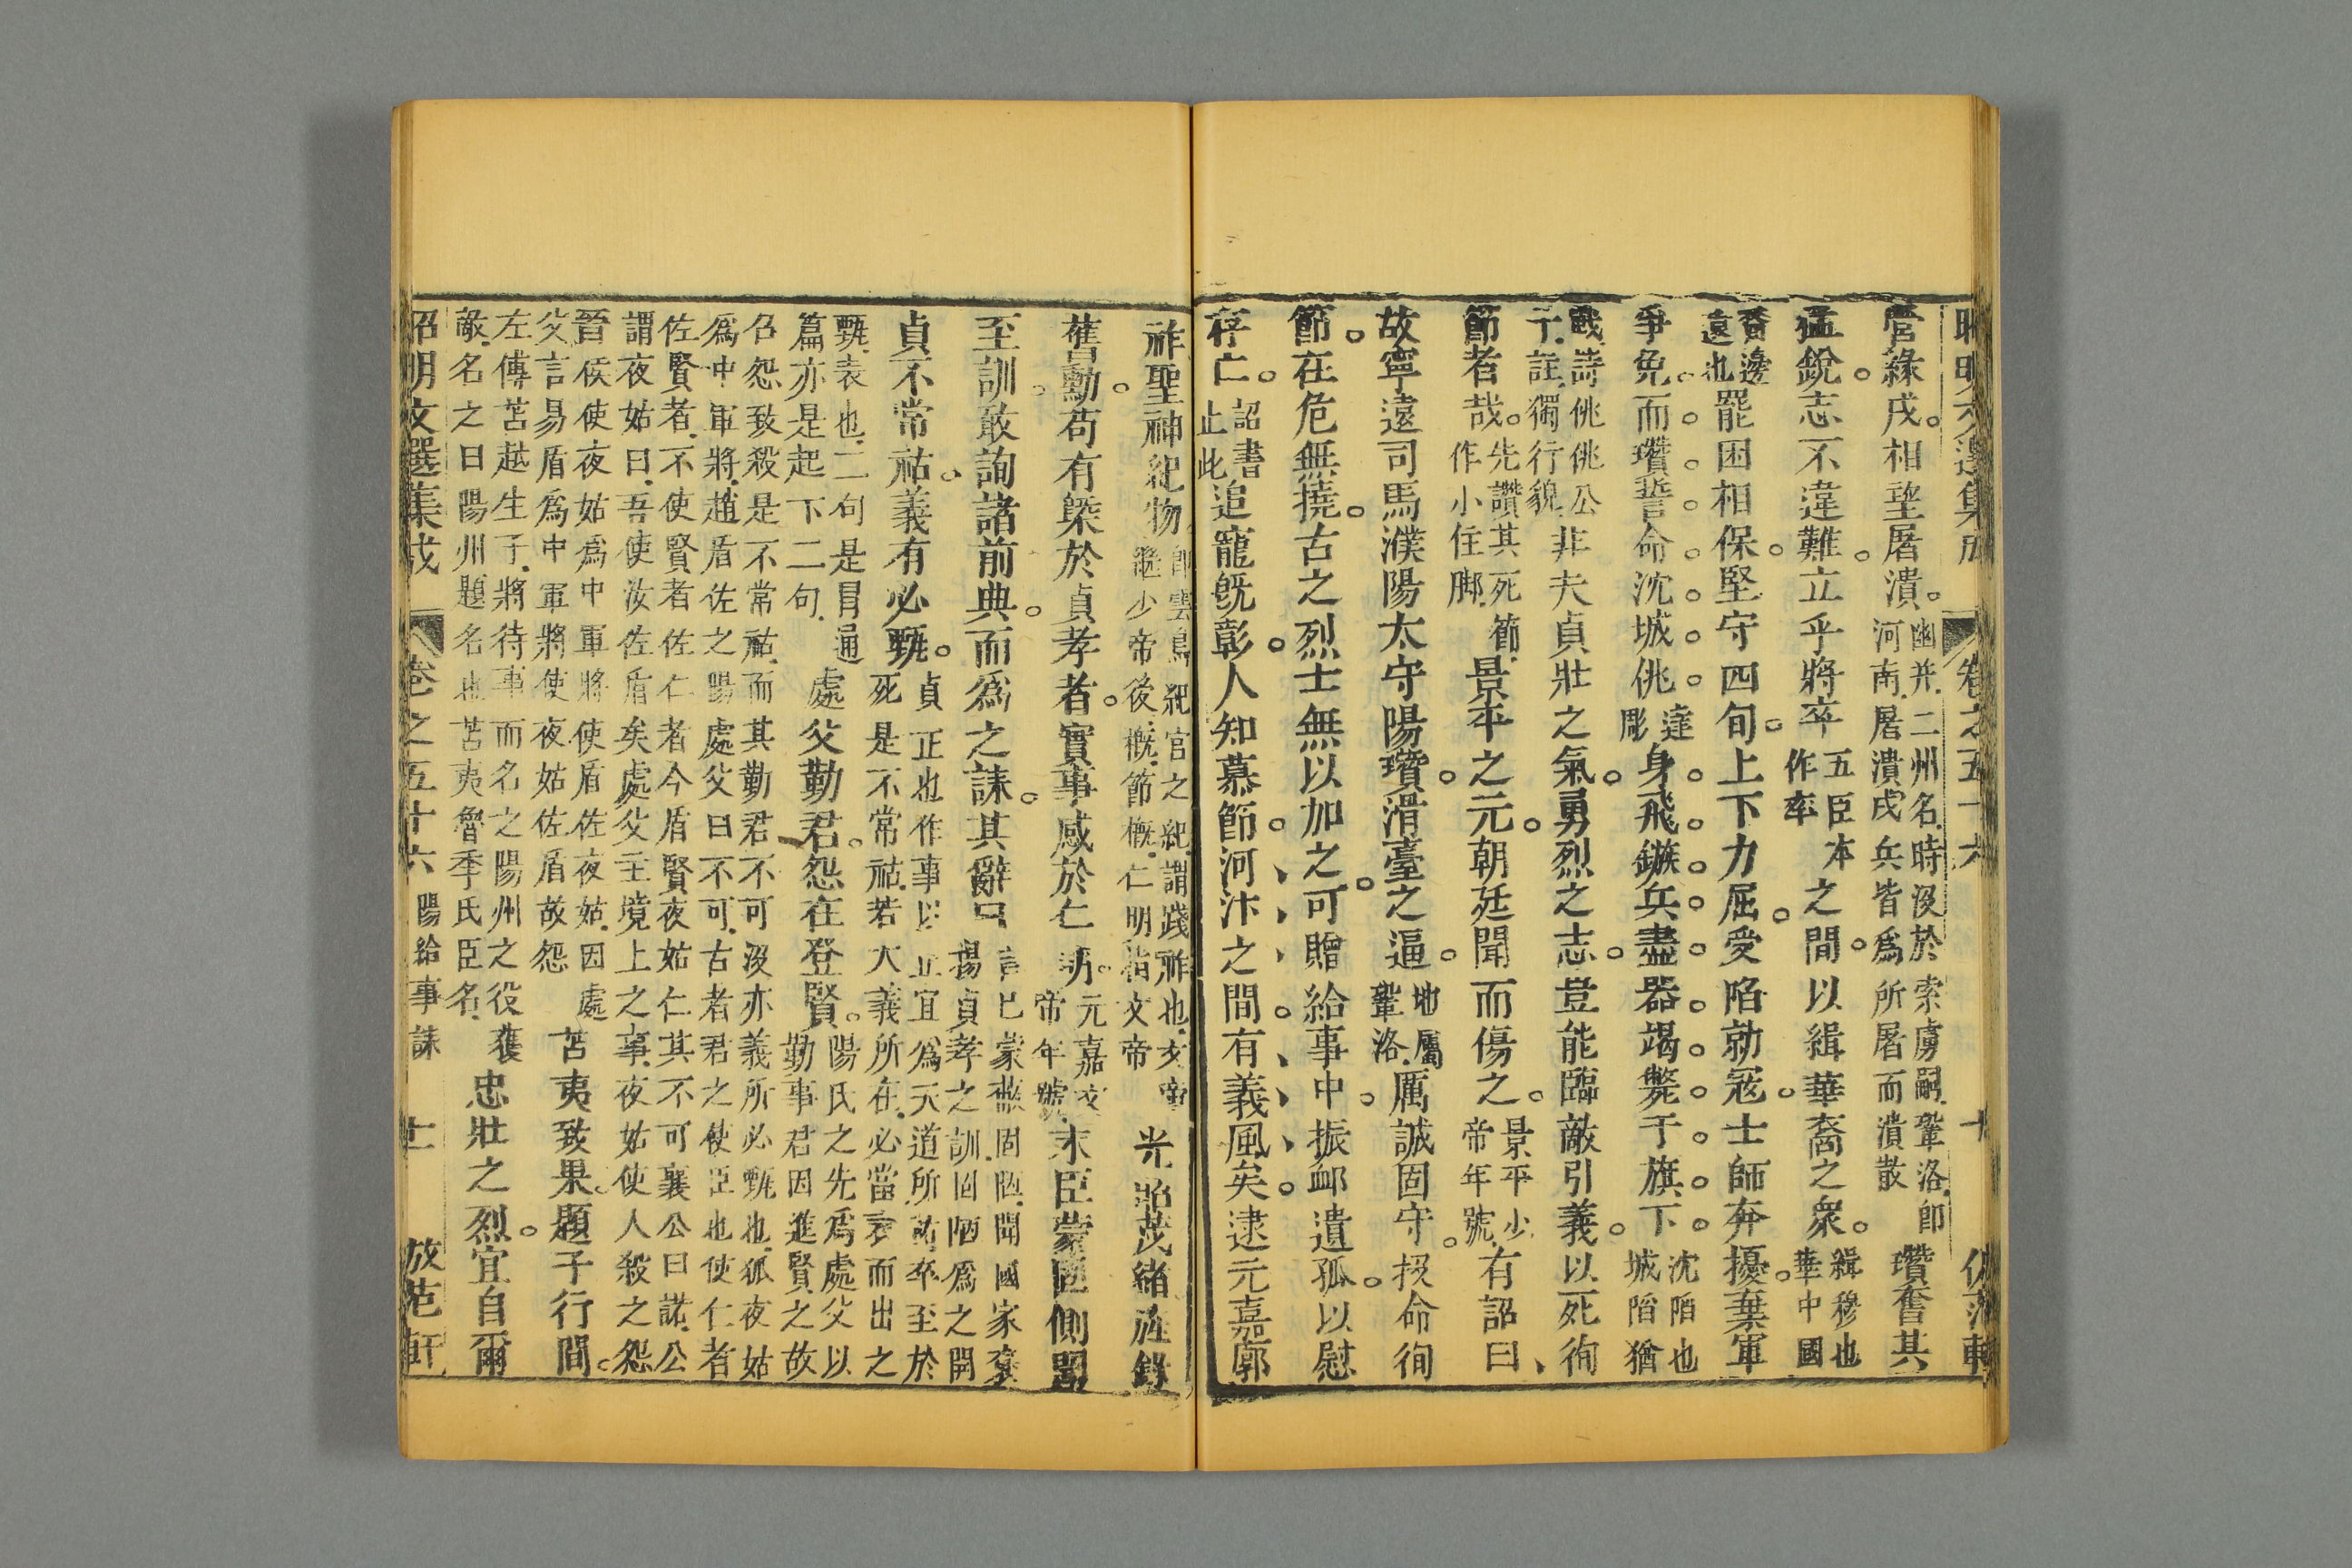 昭明文選集成 卷之五十六 十 仿范軒
營緣戍。相望屠潰。幽并、二州名、時沒於索虜嗣、鞏洛、即河南、屠潰戍兵皆為所屠而潰散瓚奮其
猛銳。志不違難。立乎將卒五臣本作率之間。以緝華裔之衆。緝穆也華中國
裔邊遠也罷困相保。堅守四旬。上下力屈。受陷勍冦。士師奔擾。棄軍
爭免。而瓚誓命沈城佻達彫身飛鏃。兵盡器竭。斃于旗下。沈陷也城陷猶
戰、詩佻佻公子、註、獨行貌非夫貞壯之氣。勇烈之志。豈能臨敵引義。以死徇
節者哉。先讚其死節、作小住脚、景平之元。朝廷聞而傷之。景平少帝年號、有詔曰、
故寧遠司馬濮陽太守陽瓚。滑臺之逼。地屬鞏洛、厲誠固守。投命徇
節。在危無撓。古之烈士無以加之。可贈給事中。振卹遺孤。以慰
存亡。詔書止此追寵旣彰。人知慕節。河汴之間。有義風矣。逮元嘉廓
祚聖神紀物、即雲鳥紀官之紀、謂踐祚也、文帝繼少帝後、槪、節槪、仁明指文帝光昭茂緒旌錄
舊勳。苟有槩於貞孝者。實事感於仁明。元嘉文帝年號、末臣蒙固側聞
至訓。敢詢諸前典。而爲之誄。其辭曰言已蒙蔽固陋、聞國家褒揚貞孝之訓、固陋爲之開
貞不常祐。義有必甄。貞正也作事以正宜爲天道所祐卒至於死是不常祐、若大義所在、必當表而出之
甄、表也、二句是冒通篇亦是起下二句、處父勤君。怨在登賢。陽氏之先爲處父以勤事君因進賢之故
召怨致殺是不常祐、而其勤君不可沒亦義所必甄也、狐夜姑
爲中軍將、趙盾佐之陽處父曰不可、古者君之使臣也使仁者
佐賢者、不使賢者佐仁者今盾賢夜姑仁其不可襄公曰諾、公
謂夜姑曰、吾使汝佐盾矣處父主境上之事、夜姑使人殺之怨
晉侯使夜姑爲中軍將使盾佐夜姑、因處父言易盾爲中軍將使夜姑佐盾故怨苫夷致果。題子行間。
左傳苫越生子、將待事而名之陽州之役獲敵、名之曰陽州題名也苫夷魯季氏臣名、忠壯之烈。宜自爾
昭明文選集成 卷之五十六 陽給事誄 十一 放范軒